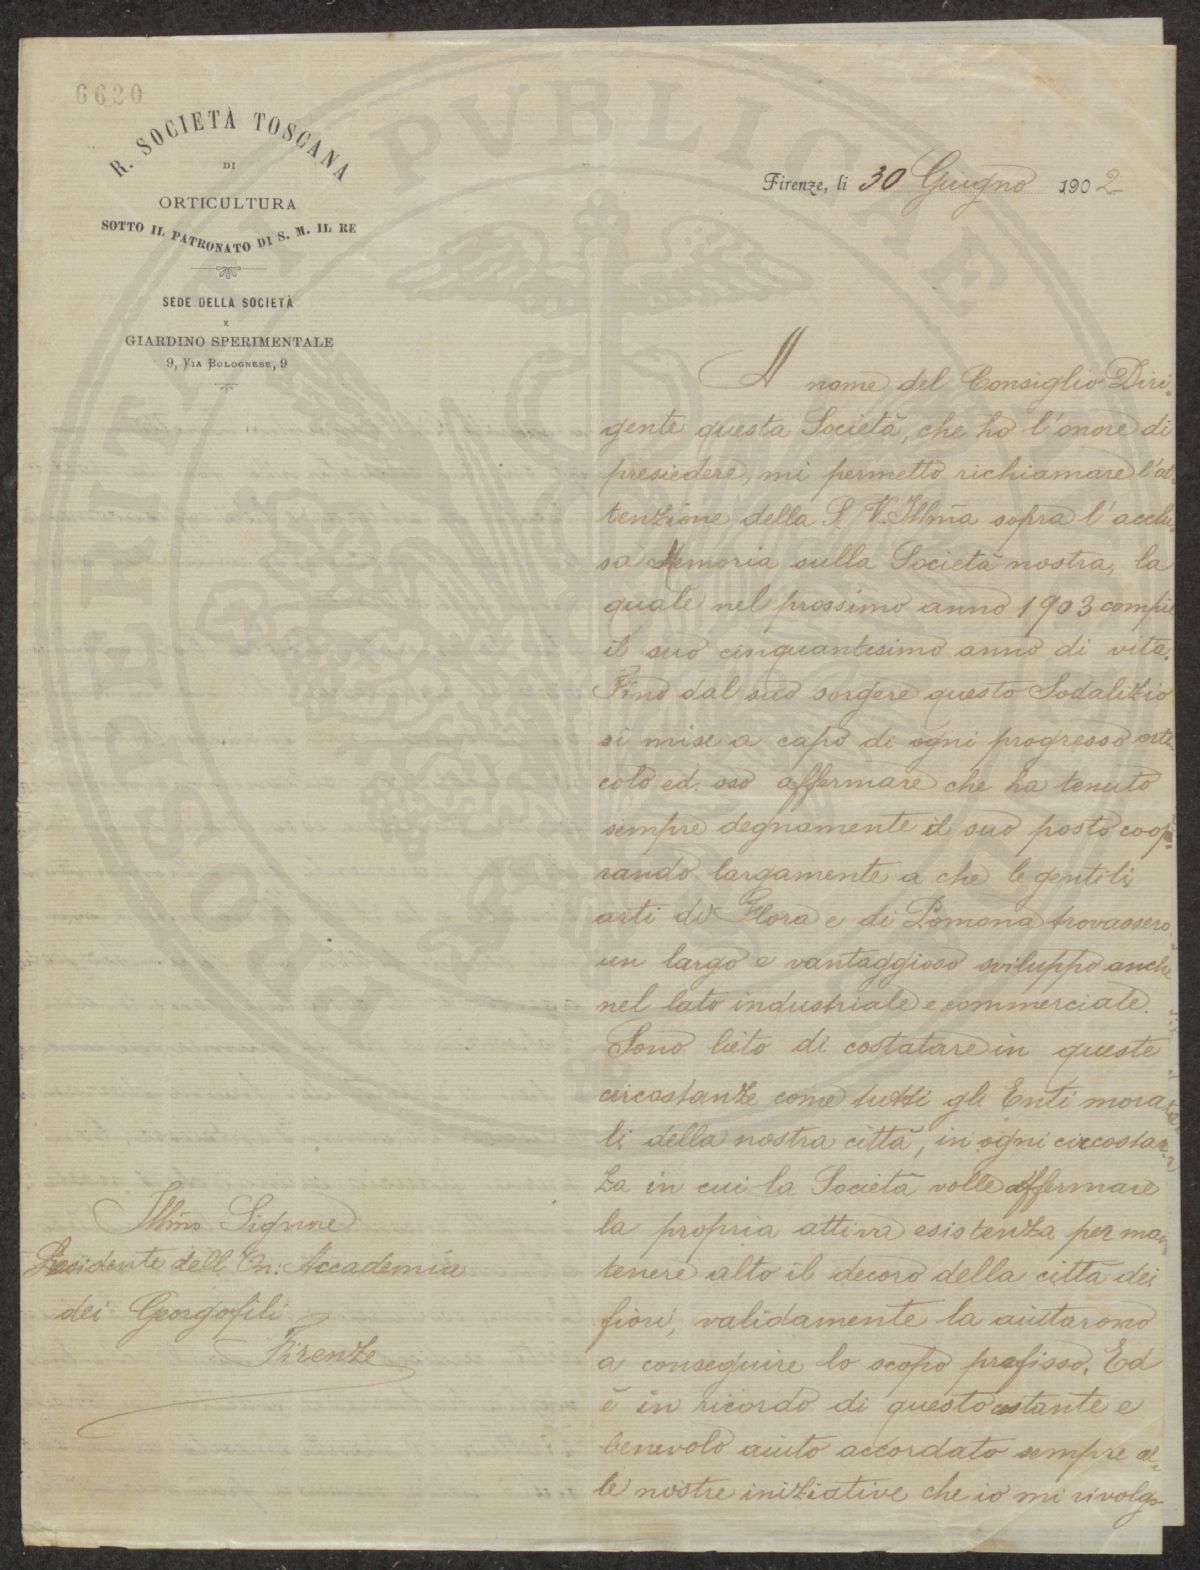 6620
R. SOCIETÀ TOSCANA
DI
ORTICULTURA
SOTTO IL PATRONATO DI S. M. IL RE
SEDE DELLA SOCIETÀ
E
GIARDINO SPERIMENTALE
9, VIA BOLOGNESE, 9
Firenze, li 30 Giugno 1902
A nome del Consiglio Diri-
gente questa Società, che ho l'onore di
presiedere, mi permetto richiamare l'at-
tenzione della S. V. Illma sopra l'acclu-
sa Memoria sulla Società nostra, la
quale nel prossimo anno 1903 compie
il suo cinquantesimo anno di vita.
Fino dal suo sorgere questo Sodalizio
si mise a capo di ogni progresso orti
colo ed oso affermare che ha tenuto
sempre degnamente il suo posto coope-
rando largamente a che le gentili
arti di Flora e di Pomona trovassero
un largo e vantaggioso sviluppo anche
nel lato industriale e commerciale.
Sono lieto di costatare in queste
circostanze come tutti gli Enti mora
li della nostra città, in ogni circostan-
za in cui la Società volle affermare
la propria attiva esistenza per man
tenere alto il decoro della città dei
fiori, validamente la aiutarono
a conseguire lo scopo prefisso. Ed
è in ricordo di questo costante e
benevolo aiuto accordato sempre al-
le nostre iniziative che io mi rivolgo
Illmo Signore
Presidente dell'On: Accademia
dei Georgofili
Firenze
PROSPERITATI PVBLICAE